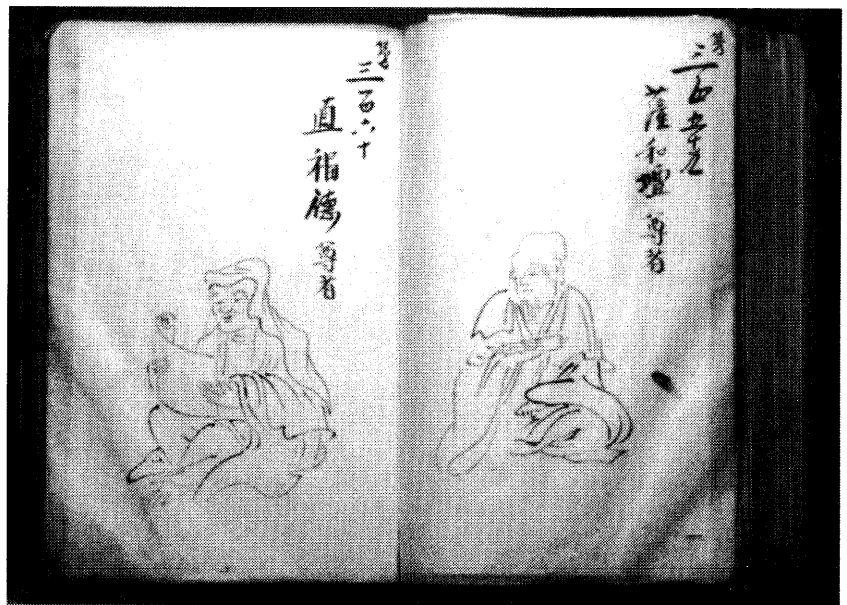 第三百五十九
薩和壇尊者
第三百六十
直福德尊者